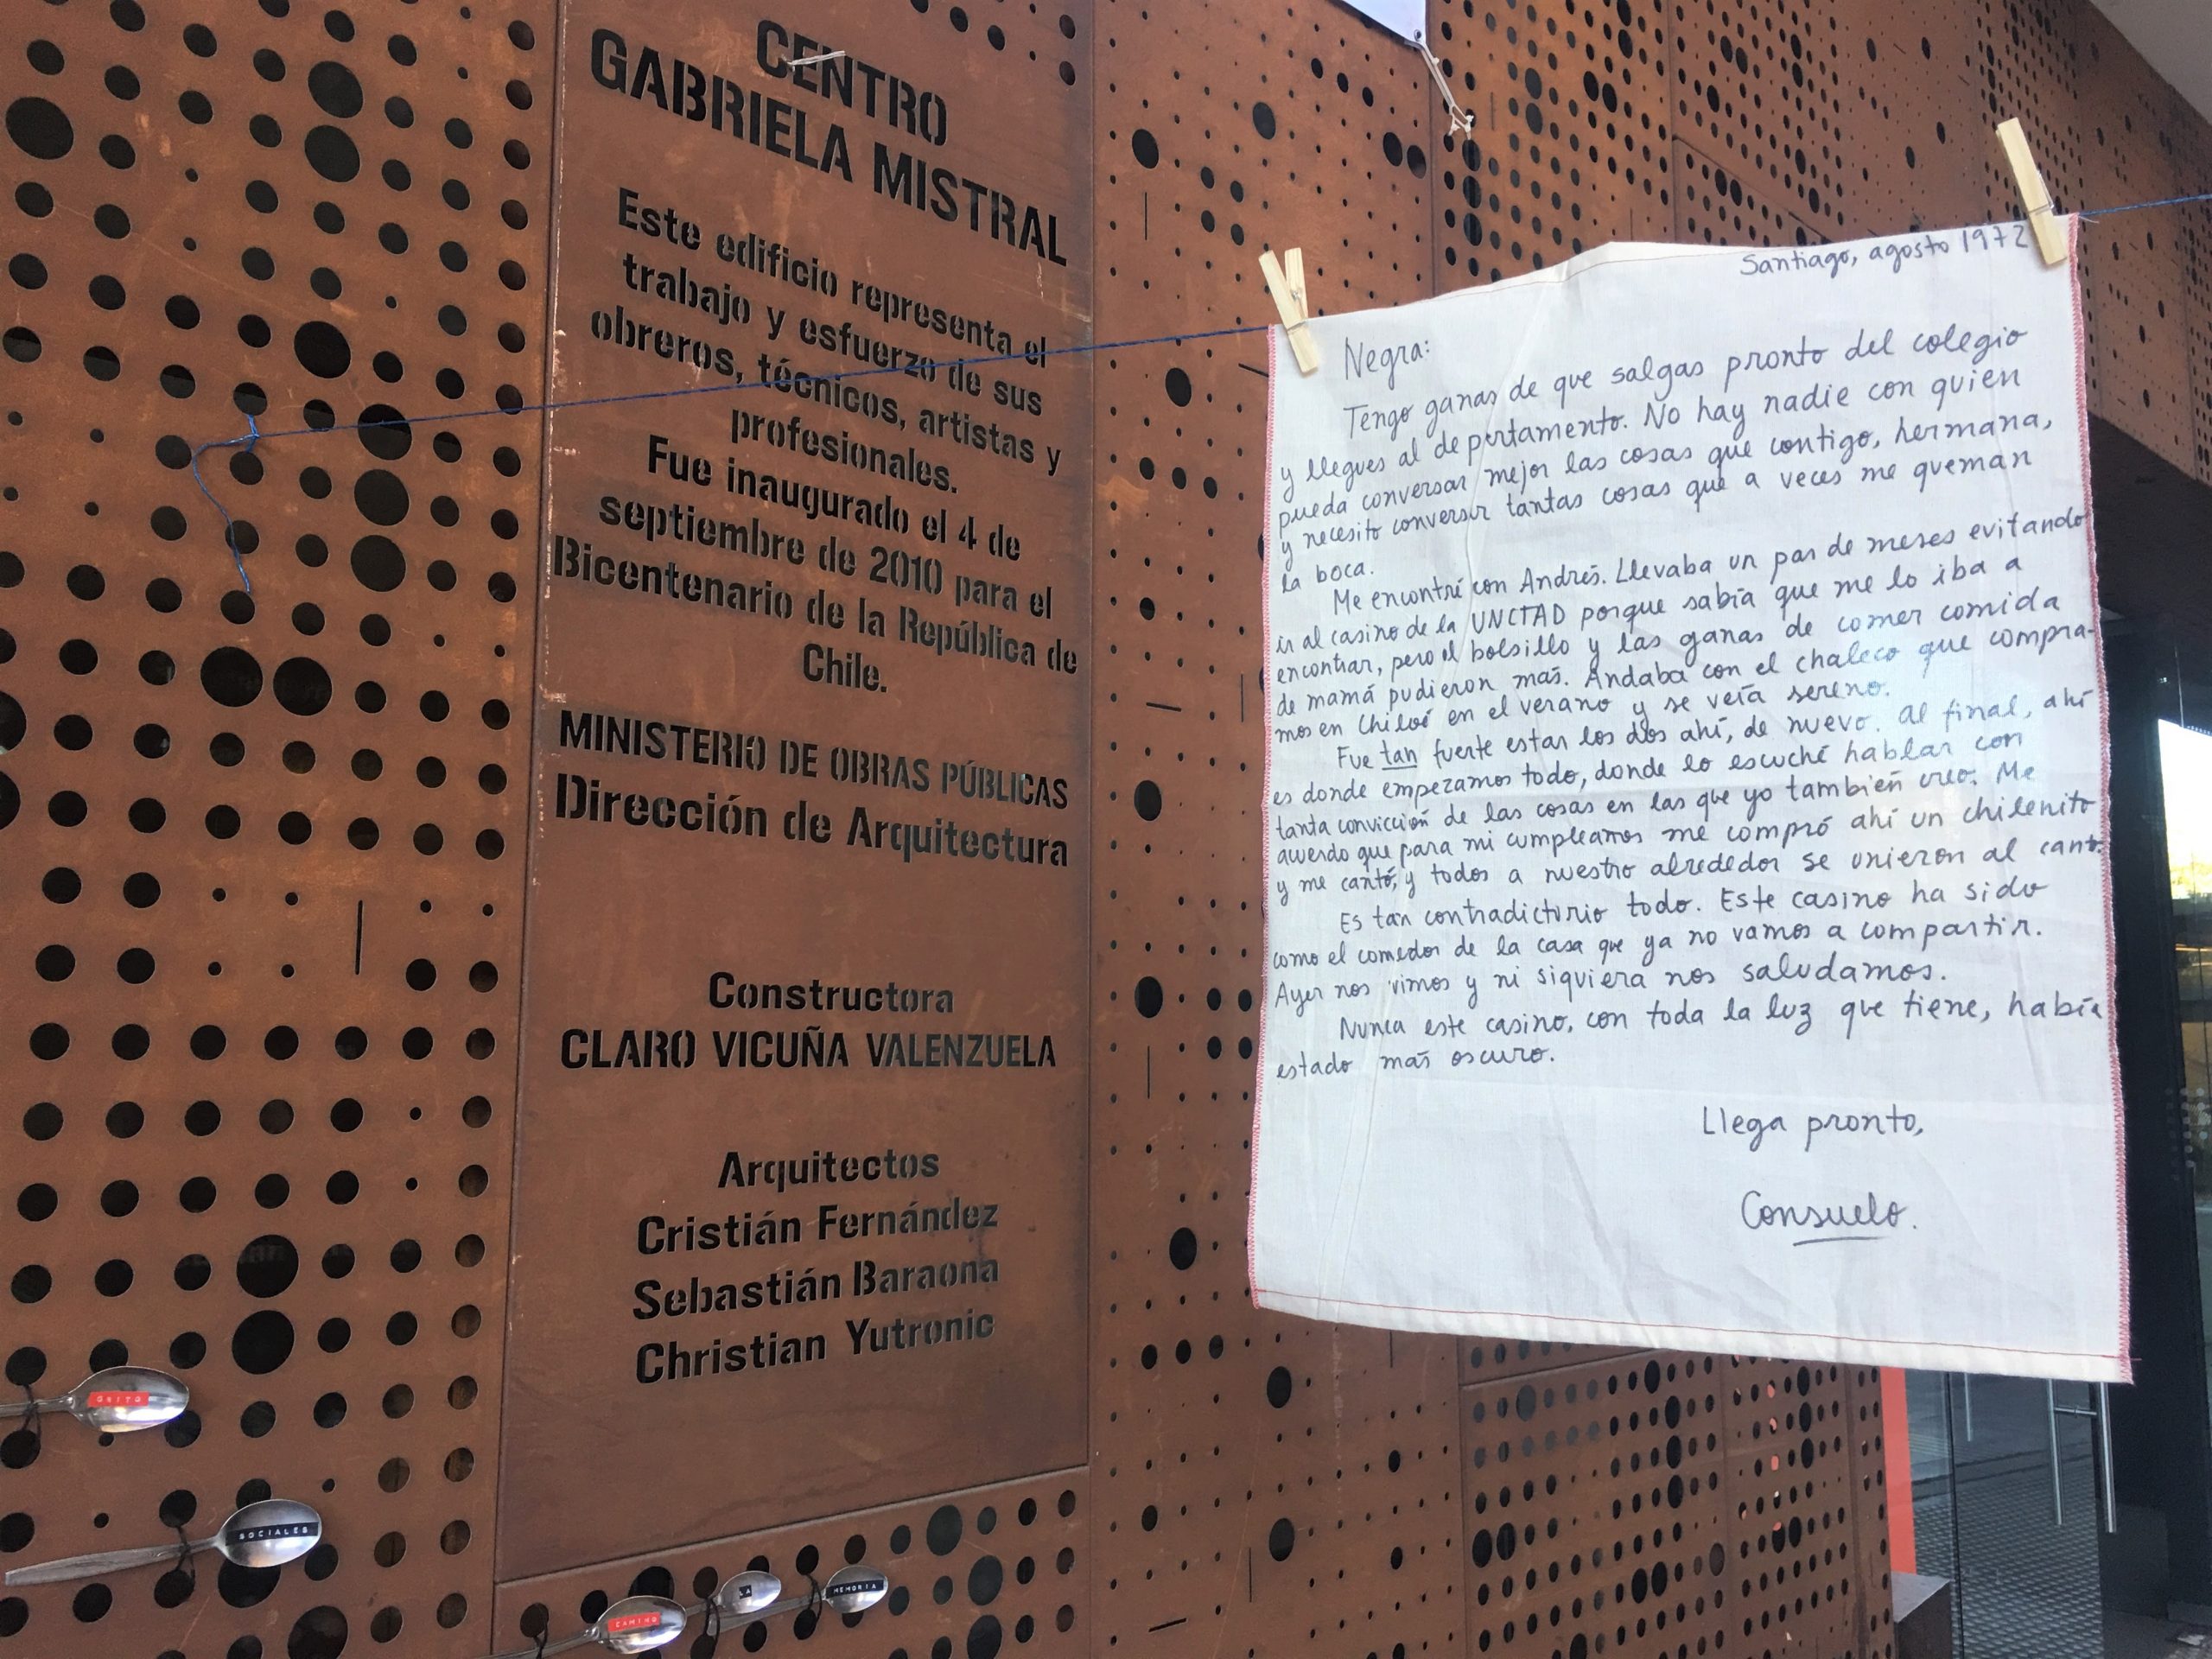 CENTRO
GABRIELA MISTRAL
Este edificio representa el
trabajo y esfuerzo de sus
obreros, técnicos, artistas y
profesionales.
Fue inaugurado el 4 de
septiembre de 2010 para el
Bicentenario de la República de
Chile.
MINISTERIO DE OBRAS PÚBLICAS
Dirección de Arquitectura
Constructora
CLARO VICUÑA VALENZUELA
Arquitectos
Cristián Fernández
Sebastián Baraona
Christian Yutronic
GRITO
SOCIALES
CAMINO
LA
MEMORIA
Santiago, agosto 1972
Negra:
Tengo ganas de que salgas pronto del colegio
y llegues al departamento. No hay nadie con quien
pueda conversar mejor las cosas que contigo, hermana,
y necesito conversar tantas cosas que a veces me queman
la boca.
Me encontré con Andrés. Llevaba un par de meses evitando
ir al casino de la UNCTAD porque sabía que me lo iba a
encontrar, pero el bolsillo y las ganas de comer comida
de mamá pudieron más. Andaba con el chaleco que compra-
mos en Chiloé en el verano y se veía sereno.
Fue tan fuerte estar los dos ahí, de nuevo. Al final, ahí
es donde empezamos todo, donde lo escuché hablar con
tanta convicción de las cosas en las que yo también creo. Me
acuerdo que para mi cumpleaños me compró ahí un chilenito
y me cantó, y todos a nuestro alrededor se unieron al canto.
Es tan contradictorio todo. Este casino ha sido
como el comedor de la casa que ya no vamos a compartir.
Ayer nos vimos y ni siquiera nos saludamos.
Nunca este casino, con toda la luz que tiene, había
estado más oscuro.
Llega pronto,
Consuelo.